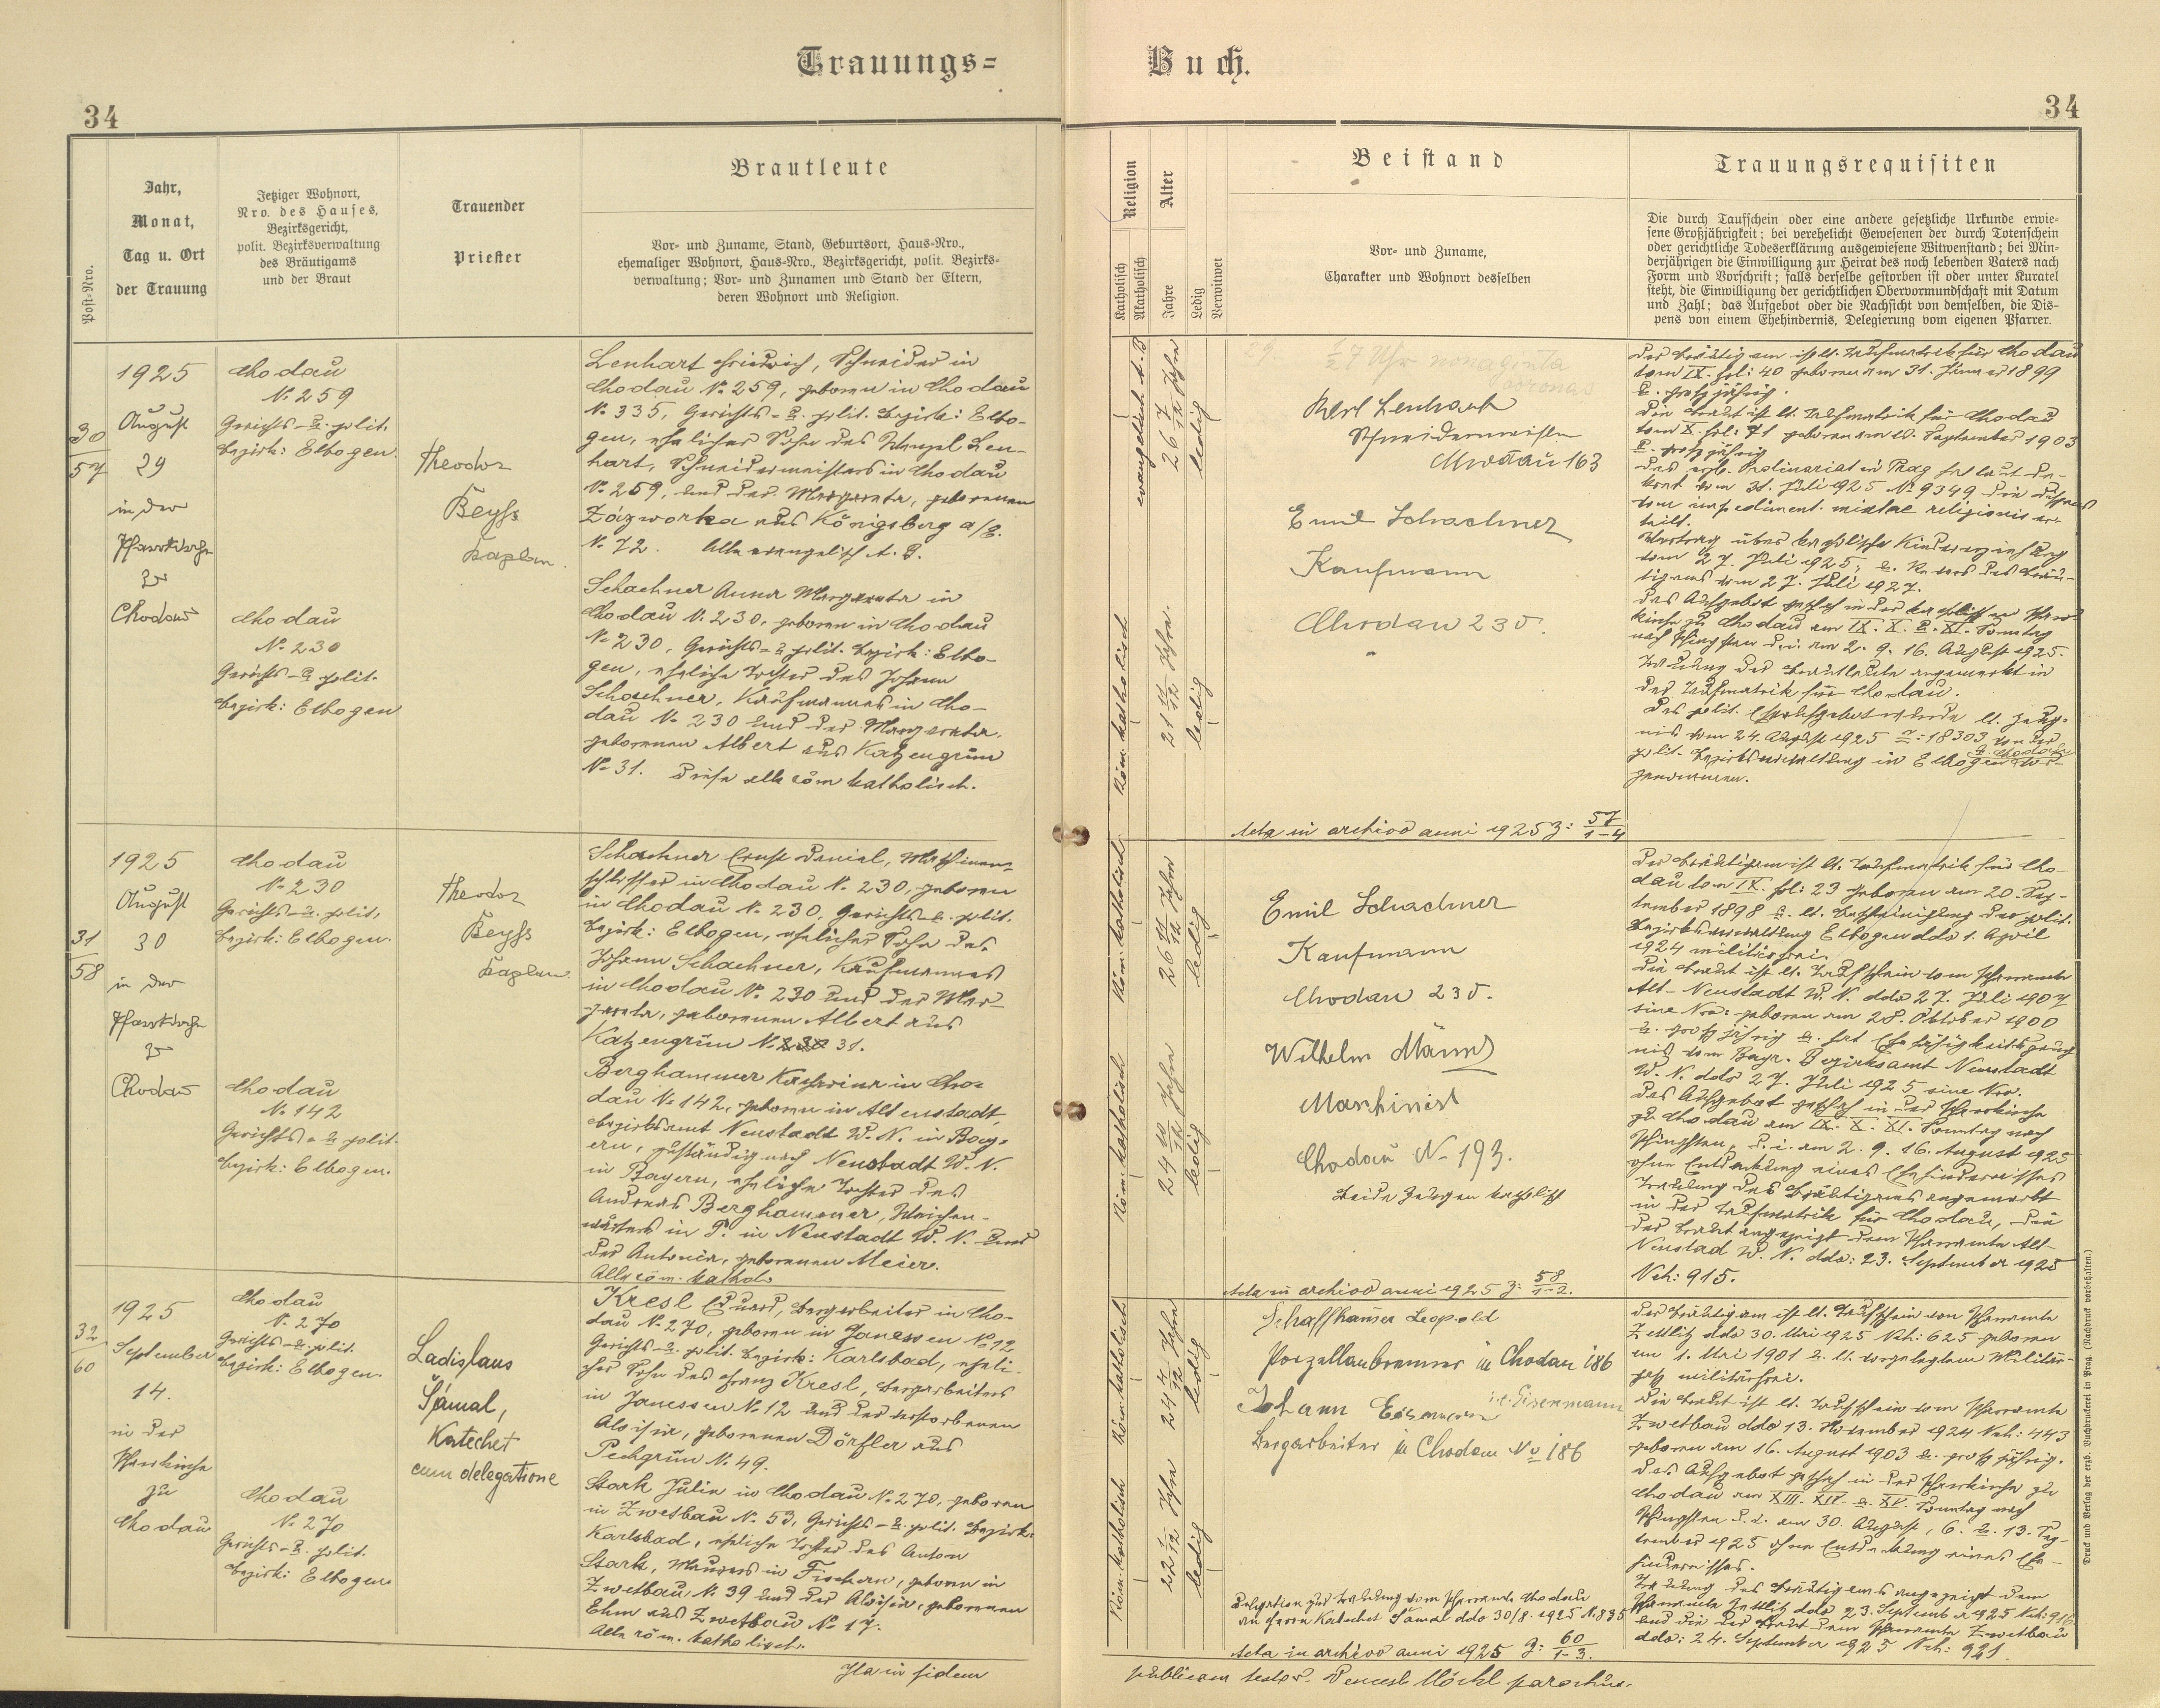 Trauungs=
Buch.
34
34
Post-Nro.
Jahr,
Monat,
Tag u. Ort
der Trauung
Jetziger Wohnort,
Nro. des Hauses,
Bezirksgericht,
polit. Bezirksverwaltung
des Bräutigams
und der Braut
Trauender
Priester
Brautleute
Vor- und Zuname, Stand, Geburtsort, Haus-Nro.,
ehemaliger Wohnort, Haus-Nro., Bezirksgericht, polit. Bezirks-
verwaltung; Vor- und Zunamen und Stand der Eltern,
deren Wohnort und Religion.
Religion
Katholisch
Akatholisch
Alter
Jahre
Ledig
Verwitwet
Beistand
Vor- und Zuname,
Charakter und Wohnort desselben
Trauungsrequisiten
Die durch Taufschein oder eine andere gesetzliche Urkunde erwie-
sene Großjährigkeit; bei verehelicht Gewesenen der durch Totenschein
oder gerichtliche Todeserklärung ausgewiesene Witwenstand; bei Min-
derjährigen die Einwilligung zur Heirat des noch lebenden Vaters nach
Form und Vorschrift; falls derselbe gestorben ist oder unter Kuratel
steht, die Einwilligung der gerichtlichen Obervormundschaft mit Datum
und Zahl; das Aufgebot oder die Nachsicht von demselben, die Dis-
pens von einem Ehehindernis, Delegierung vom eigenen Pfarrer.
30
57
1925
August
29
in der
Pfarrkirche
zu
Chodau
Chodau
N. 259
Gerichts- u. polit.
Bezirk: Elbogen.
Chodau
N. 230
Gerichts- u. polit.
Bezirk: Elbogen
Theodor
Beyss
Kaplan.
Lenhart Friedrich, Schneider in
Chodau N. 259, geboren in Chodau
N. 335, Gerichts- u. polit. Bezirk: Elbo-
gen, ehelicher Sohn des Wenzel Len-
hart, Schneidermeisters in Chodau
N. 259, und der Margareta, geborenen
Zázworka aus Königsberg a/E.
N. 72. Alle evangelisch A. B.
Schachner Anna Margareta in
Chodau N. 230, geboren in Chodau
N. 230, Gerichts- u. polit. Bezirk: Elbo-
gen, eheliche Tochter des Johann
Schachner, Kaufmannes in Cho-
dau N. 230 und der Margareta,
geborenen Albert aus Katzengrün
N. 31. Diese alle röm katholisch.
evangelisch A. B
26 7/12 Jahre
ledig
Röm. katholisch
21 11/12 Jahre.
ledig
29. 1/2 7 Uhr nonaginta
coronas
Karl Lenhart
Schneidermeister
Chodau 163
Emil Schachner
Kaufmann
Chodau 230.
Acta in archivo anni 1925 z: 57/1-4
Der Bräutigam ist lt. Taufmatrik für Chodau
tom IX. fol: 40 geboren am 31. Jänner 1899
u. großjährig.
Die Braut ist lt. Taufmatrik für Chodau
tom X. fol: 71 geboren am 10. September 1903
u. großjährig
Das erzb. Ordinariat in Prag hat laut De-
kret vom 31. Juli 1925 N. 9349 die Dispens
vom impediment. mixtae religionis er-
teilt.
Vertrag über katholische Kindererziehung
vom 27. Juli 1925; u. Revers des Bräu-
tigams vom 27. Juli 1927.
Das Aufgebot geschah in der katholischen Pfarr-
kirche zu Chodau am IX. X. u. XI. Sonntag
nach Pfingsten d. i. am 2. 9. 16. August 1925.
Trauung der Brautleute angemerkt in
der Taufmatrik für Chodau.
Das polit. Eheaufgebot wurde lt. Zeug-
nis vom 24. August 1925 Z: 18303 von der
polit. Bezirksverwaltung in Elbogen vor-
genommen.
31
58
1925
August
30
in der
Pfarrkirche
zu
Chodau
Chodau
N. 230
Gerichts- u. polit.
Bezirk: Elbogen.
Chodau
N. 142
Gerichts- u. polit.
Bezirk: Elbogen.
Theodor
Beyss
Kaplan.
Schachner Ernst Daniel, Maschinen-
schlosser in Chodau N. 230, geboren
in Chodau N. 230, Gerichts- u. polit.
Bezirk: Elbogen, ehelicher Sohn des
Johann Schachner, Kaufmannes
in Chodau N. 230 und der Mar-
gareta, geborenen Albert aus
Katzengrün N. 31.
Berghammer Katharina in Cho-
dau N. 142, geboren in Altenstadt,
Bezirksamt Neustadt W. N. in Bay-
ern, zuständig nach Neustadt W. N.
in Bayern, eheliche Tochter des
Andreas Berghammer, Weichen-
wärters in P. in Neustadt W. N. und
der Antonia, geborenen Meier.
Alle röm. kathol.
Röm. katholisch
26 11/12 Jahre
ledig
Röm. katholisch
24 10/12 Jahre
ledig
Emil Schachner
Kaufmann
Chodau 230.
Wilhelm Männl
Maschinist
Chodau N. 193.
Beide Zeugen katholisch
Acta in archivo anni 1925 z: 58/1-2.
Der Bräutigam ist lt. Taufmatrik für Cho-
dau tom IX. fol: 23 geboren am 20. Sep-
tember 1898 u. lt. Bescheinigung der polit.
Bezirksverwaltung Elbogen ddo 1. April
1924 militärfrei.
Die Braut ist lt. Taufschein vom Pfarramte
Alt-Neustadt W. N. ddo 27. Juli 1907
sine Nro: geboren am 28. Oktober 1900
u. großjährig u. hat Ehefähigkeitszeug-
nis vom Bayr. Bezirksamt Neustadt
W. N. ddo 27. Juli 1925 sine Nro.
Das Aufgebot geschah in der Pfarrkirche
zu Chodau am IX. X. XI. Sonntag nach
Pfingsten, d. i. am 2. 9. 16. August 1925
ohne Entdeckung eines Ehehindernisses
Trauung des Bräutigams angemerkt
in der Taufmatrik für Chodau, die
der Braut angezeigt dem Pfarramte Alt-
Neustad W. N. ddo: 23. September 1925
Neh: 915.
32
60
1925
September
14.
in der
Pfarrkirche
zu
Chodau
Chodau
N. 270
Gerichts- u. polit.
Bezirk: Elbogen.
Chodau
N. 270
Gerichts- u. polit.
Bezirk: Elbogen
Ladislaus
Šámal,
Katechet
cum delegatione
Kresl Eduard, Bergarbeiter in Cho-
dau N. 270, geboren in Janessen N. 12
Gerichts- u. polit. Bezirk: Karlsbad, eheli-
cher Sohn des Franz Kresl, Bergarbeiters
in Janessen N. 12 und der verstorbenen
Aloisia, geborenen Dörfler aus
Pechgrün N. 49.
Stark Julie in Chodau N. 270, geboren
in Zwetbau N. 53, Gerichts- u. polit. Bezirk:
Karlsbad, eheliche Tochter des Anton
Stark, Maurers in Fischern, geboren in
Zwetbau N. 39 und der Aloisia, geborenen
Ehm aus Zwetbau N. 17.
Alle röm. katholisch.
Röm. katholisch
24 4/12 Jahre
ledig
Röm. katholisch
22 1/12 Jahre
ledig
Schaffhauser Leopold
Porzellanbrenner in Chodau 186
Johann Eisenmann
Eisenmann
Bergarbeiter in Chodau No 186
Delegation zur Trauung vom Pfarramte Chodau
an Herrn Katechet Šámal ddo 30/8. 1925 N. 835
Acta in archivo anni 1925 z: 60/1-3.
Der Bräutigam ist lt. Taufschein von Pfarramte
Zettlitz ddo 30. Mai 1925 Neh: 625 geboren
am 1. Mai 1901 u. lt. vorgelegtem Militär-
paß militärfrei.
Die Braut ist lt. Taufschein vom Pfarramte
Zwetbau ddo 13. November 1924 Neh: 443
geboren am 16. August 1903 u. großjährig.
Das Aufgebot geschah in der Pfarrkirche zu
Chodau am XIII. XIV. u. XV. Sonntag nach
Pfingsten d. i. am 30. August, 6. u. 13. Sep-
tember 1925 ohne Entdeckung eines Ehe-
hindernisses.
Trauung des Bräutigams angezeigt dem
Pfarramte Zettlitz ddo 23. September 1925 Neh: 916
und die der Braut dem Pfarramte Zwetbau
ddo: 24. September 1925 Neh: 921.
Ita in fidem
publicam testor. Wencesl Möckl parochus.
Druck und Verlag der erzb. Buchdruckerei in Prag. (Nachdruck vorbehalten.)